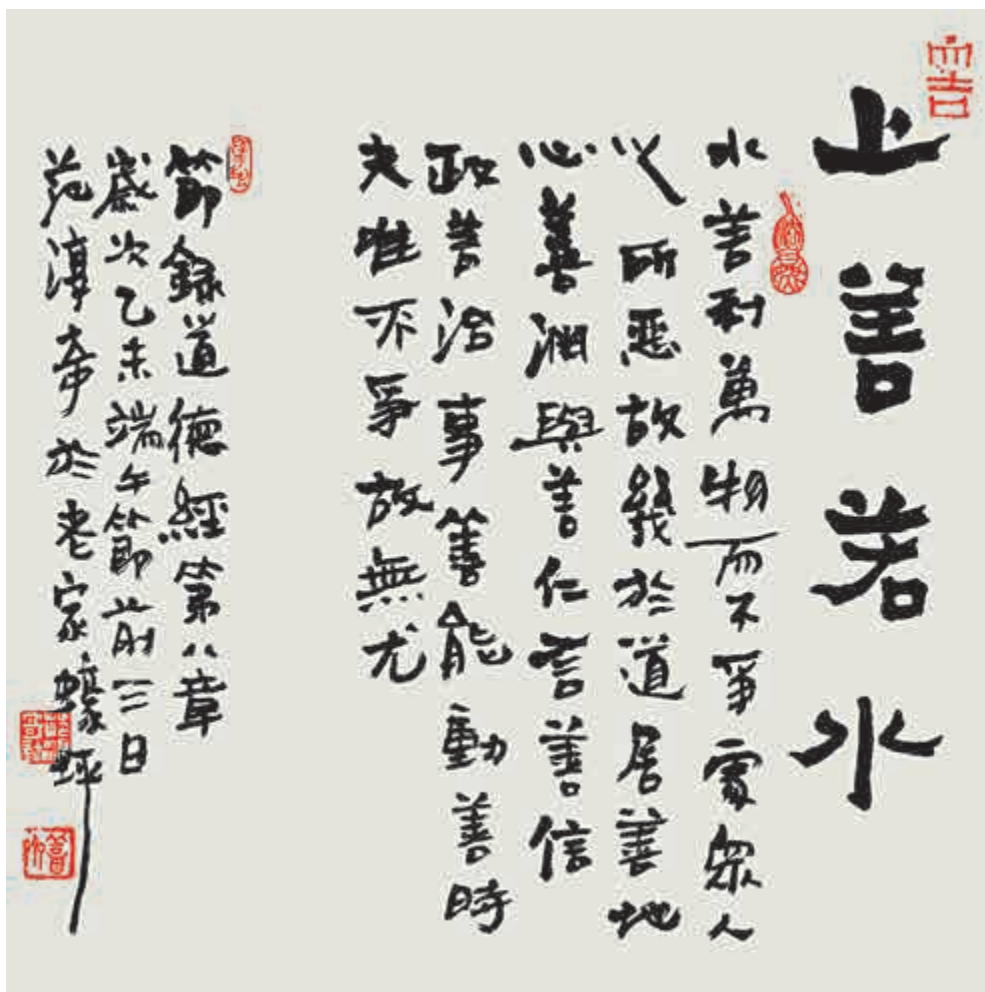 上善若水
水善利萬物而不爭處眾人
之所惡故幾於道居善地
心善淵與善仁言善信
政善治事善能動善時
夫唯不爭故無尤
節錄道德經第八章
歲次乙未端午節前三日
范奇於老家蠔坪